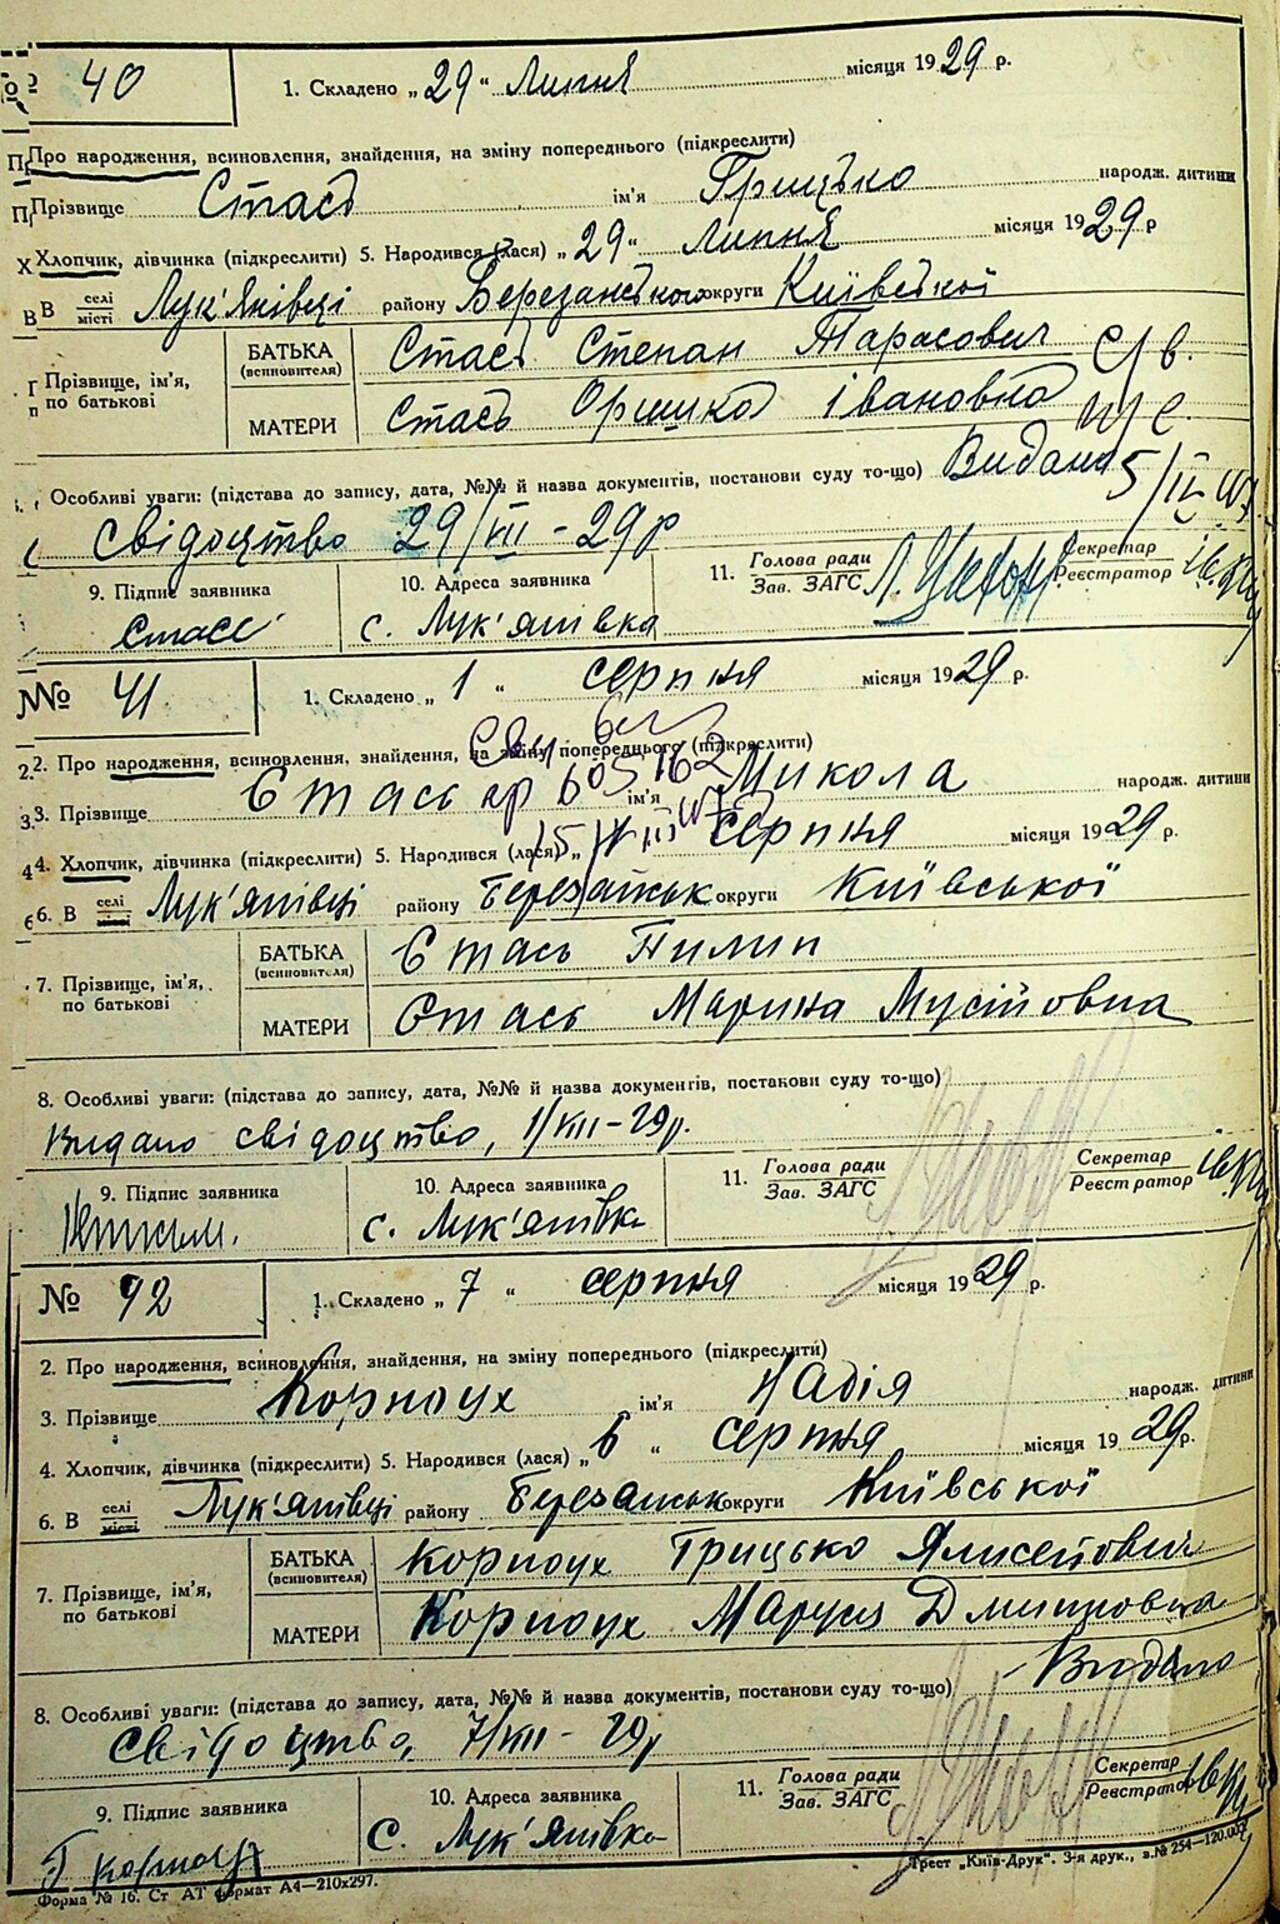 40
1. Складено „29“ Липня місяця 1929 р.
Про народження, всиновлення, знайдення, на зміну попереднього (підкреслити)
Прізвище Стась ім'я Грицько народж. дитини
Хлопчик, дівчинка (підкреслити) 5. Народився (лася) „29“ Липня місяця 1929 р
В селі місті Лук'янівці району Березанського округи Київської
Прізвище, ім'я, по батькові
БАТЬКА (всиновителя) Стась Степан Тарасович
МАТЕРИ Стась Оришка Івановна
Особливі уваги: (підстава до запису, дата, №№ й назва документів, постанови суду то-що) Видано
Свідоцтво 29/VII - 29р
9. Підпис заявника 10. Адреса заявника 11. Голова ради Зав. ЗАГС Секретар Реєстратор
Стась с. Лук'янівка
№ 41 1. Складено „1“ серпня місяця 1929 р.
2. Про народження, всиновлення, знайдення, на зміну попереднього (підкреслити)
3. Прізвище Стась ім'я Микола народж. дитини
4. Хлопчик, дівчинка (підкреслити) 5. Народився (лася) „ серпня місяця 1929 р.
6. В селі місті Лук'янівці району Березанськ округи Київської
7. Прізвище, ім'я, по батькові
БАТЬКА (всиновителя) Стась Пилип
МАТЕРИ Стась Марина Мусійовна
8. Особливі уваги: (підстава до запису, дата, №№ й назва документів, постанови суду то-що)
Видано свідоцтво, 1/VIII - 29р.
9. Підпис заявника 10. Адреса заявника 11. Голова ради Зав. ЗАГС Секретар Реєстратор
с. Лук'янівка
№ 42 1. Складено „7“ серпня місяця 1929 р.
2. Про народження, всиновлення, знайдення, на зміну попереднього (підкреслити)
3. Прізвище Корноух ім'я Надія народж. дитини
4. Хлопчик, дівчинка (підкреслити) 5. Народився (лася) „6“ серпня місяця 1929р.
6. В селі місті Лук'янівці району Березанськ округи Київської
7. Прізвище, ім'я, по батькові
БАТЬКА (всиновителя) Корноух Грицько Алисейович
МАТЕРИ Корноух Маруся Дмитровна
8. Особливі уваги: (підстава до запису, дата, №№ й назва документів, постанови суду то-що) Видано
Свідоцтво, 7/VIII - 29р
9. Підпис заявника 10. Адреса заявника 11. Голова ради Зав. ЗАГС Секретар Реєстратор
Г Корноух с. Лук'янівка
Форма № 16. Ст АТ формат А4—210х297. Трест „Київ-Друк“. 3-я друк., з.№ 254—120.000